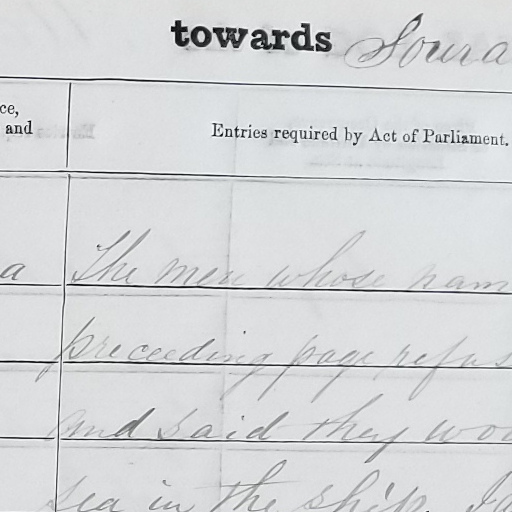 towards Soura
ce,
and
Entries required by Act of Parliament.
a
The men whose nam
preceeding page refus
and said they wou
sea in the ship.